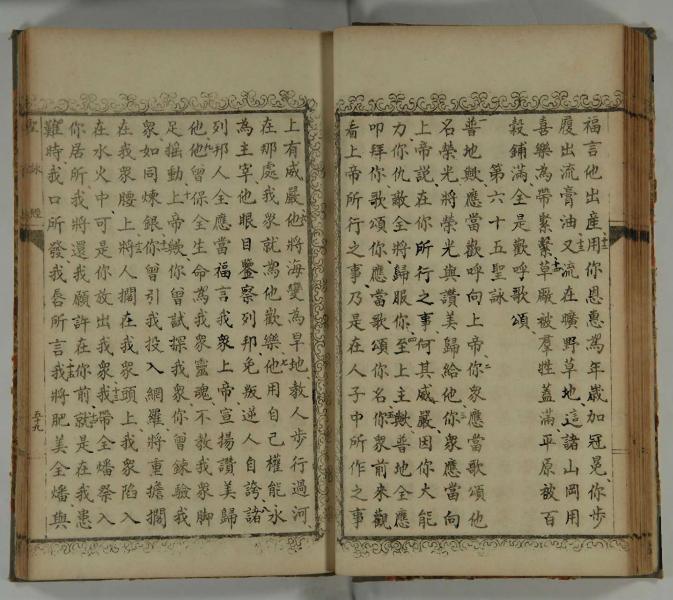 福言他出産用你恩惠為年歲加冠冕你步
履出流膏油又流在曠野草地這諸山岡用
喜樂為帶縈繫草厰被羣牲蓋滿平原被百
穀鋪滿全是歡呼歌頌
第六十五聖詠
普地歟應當歡呼向上帝你衆應當歌頌他
名榮光將榮光與讚美歸給他你衆應當向
上帝説在你所行之事何其威嚴因你大能
力你仇敵全將歸服你至上主歟普地全應
叩拜你歌頌你應當歌頌你名你衆前來觀
看上帝所行之事乃是在人子中所作之事
上有威嚴他將海變為旱地教人步行過河
在那處我衆就為他歡樂他用自己權能永
為主宰他眼目鑒察列邦免叛逆人自誇諸
列邦人全應當福言我衆上帝宣揚讚美歸
他他曾保全生命為我衆靈魂不教我衆脚
足摇動上帝歟你曾試探我衆你曾鍊驗我
衆如同煉銀你曾引我投入網羅將重擔擱
在我衆腰上將人擱在我衆頭上我衆陷入
在水火中可是你放出我衆我帶全燔祭入
你居所我將還我願許在你前就是在我患
難時我口所發我唇所言我將肥美全燔與
詠
五十九